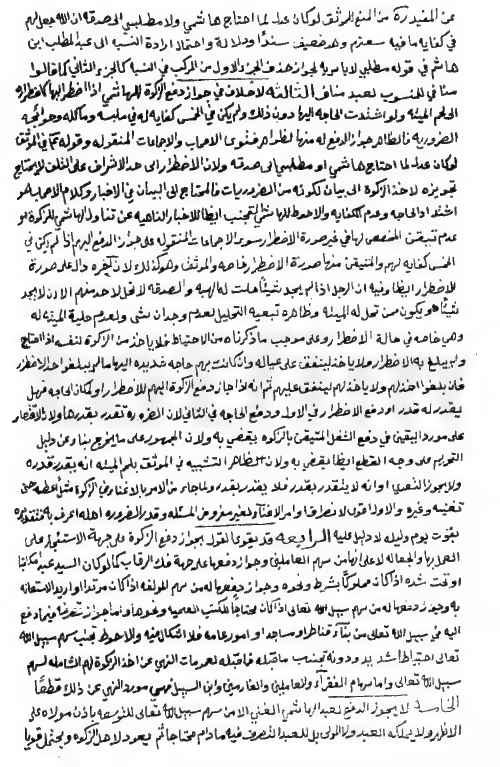 عن المفيد رة من المنع للموثق لوكان عدل لما احتاج هاشمي ولا مطلبي الى صدقه ان الله جعل لهم
في كتابه ما فيه سعتهم وهو ضعيف سندًا ودلالة واحتمال ارادة النسبه الى عبد المطلب ابن
هاشم في قوله مطلبي لا باس به لجواز حذف الجزء الاول من المركب في النسبه كالجزء الثاني كما قالوا
منافي في المنسوب لعبد مناف الثالثة لا خلاف في جواز دفع الزكوة للهاشمي اذا اضطر اليها كاضطراره
الى لحم الميتة ولو اشتدت الحاجه اليها دون ذلك ولم يكن في الخمس كفاية له في ملبسه وماكله وحوائجه
الضروريه فالظاهر جواز الدفع له منها لظواهر فتوى الاصحاب والاجماعات المنقوله وقوله ع في الموثق
لوكان عدل لما احتاج هاشمي او مطلبي الى صدقه ولان الاضطرار الى حد الاشراف على التلف لا يحتاج
تجويزه لاخذ الزكوة الى بيان لكونه من الضروريات فالمحتاج الى البيان في الاخبار وكلام الاصحاب هو
اشتداد الحاجه وعدم الكفايه والاحوط للهاشمي التجنب ايضًا للاخبار الناهيه عن تناول الهاشمي للزكوة مع
عدم تيقن المخصص لها في غير صورة الاضطرار سوى الاجماعات المنقوله على جواز الدفع اليهم اذا لم يكن في
الخمس كفايه لهم والمتيقن منها صورة الاضطرار خاصه والموثق وهو كذلك لان اخره دال على صورة
الاضطرار ايضًا وفيه ان الرجل اذا لم يجد شيئًا حلت له الميته والصدقه لا تحل لاحد منهم الا ان لا يجد
شيئًا ويكون ممن تحل له الميته وظاهره تبعيه التحليل لعدم وجدان شيء ولعدم حلية الميته له
وهي خاصه في حالة الاضطرار وعلى موجب ما ذكرناه من الاحتياط فلا ياخذ من الزكوة لنفسه اذا احتاج
ولم يبلغ به الاضطرار ولا ياخذ لينفق على عياله وان كانت بهم حاجه شديده اليها ما لم يبلغوا حد الاضطرار
فان بلغوا اخذ لهم ولا ياخذ لهم لينفق عليهم ثم انه اذا جاز دفع الزكوة اليهم للاضطرار او لمكان الحاجه فهل
يتقدر له قدر او دفع الاضطرار في الاول ودفع الحاجه في الثاني لان الضروره تقدر بقدرها ولان الاقتصار
على مورد اليقين في دفع الشغل المتيقن بالزكوة يقضي به ولان الجمهور على ما يخرج بنا عن دليل
التحريم على وجه القطع ايضًا يقضي به ولان الظاهر التشبيه في الموثق بلحم الميته انه يقدر قدره
ولا يجوز التعدي او انه لا يتقدر بقدر فلا يقدر بقدر ولما جاء من الامر بالاغناء في الزكوة مثل اعطه حتى
تغنيه وغيره والاول اقوى لانصراف اوامر الاغناء لغير مفروض المسئله وقدر الضروره اهله اعرف به فتقديره
بقوت يوم وليله لا دليل عليه الرابعه قد يقوى القول بجواز دفع الزكوة على جهة الاستئجار على
العمل بها والجعاله لا على انها من سهم العاملين وجواز دفعها على جهة فك الرقاب كما لو كان السيد عبدا مكاتبا
او تحت شده اذا كان مملوكًا بشرط ونحوه وجواز دفعها له من سهم المولفه اذا كان مرتدا واريد الاستعانه
به وجواز دفعها له من سهم سبيل الله تعالى اذا كان محتاجًا للكتب العلميه ونحوها واما جواز تصرفه فيما دفع
اليه من سبيل الله تعالى من بناء قناطر او مساجد او امور عامه فلا اشكال فيه والاحوط تجنب سهم سبيل الله
تعالى احتياطًا شديدًا ودونه تجنب ما قبله فما قبله لعمومات النهي عن اخذ الزكوة لهم الشامله لسهم
سبيل الله تعالى واما سهام الفقراء والعاملين والغارمين وابن السبيل فهي مورد النهي عن ذلك قطعًا
الخامسه لا يجوز الدفع لعبد الهاشمي الغني الا من سهم سبيل الله تعالى للتوسعه باذن مولاه على
الاظهر ولا يملكه العبد ولا المولى بل للعبد التصرف فيه ما دام محتاجًا ثم يعود لاهل الزكوه ويحتمل قويا